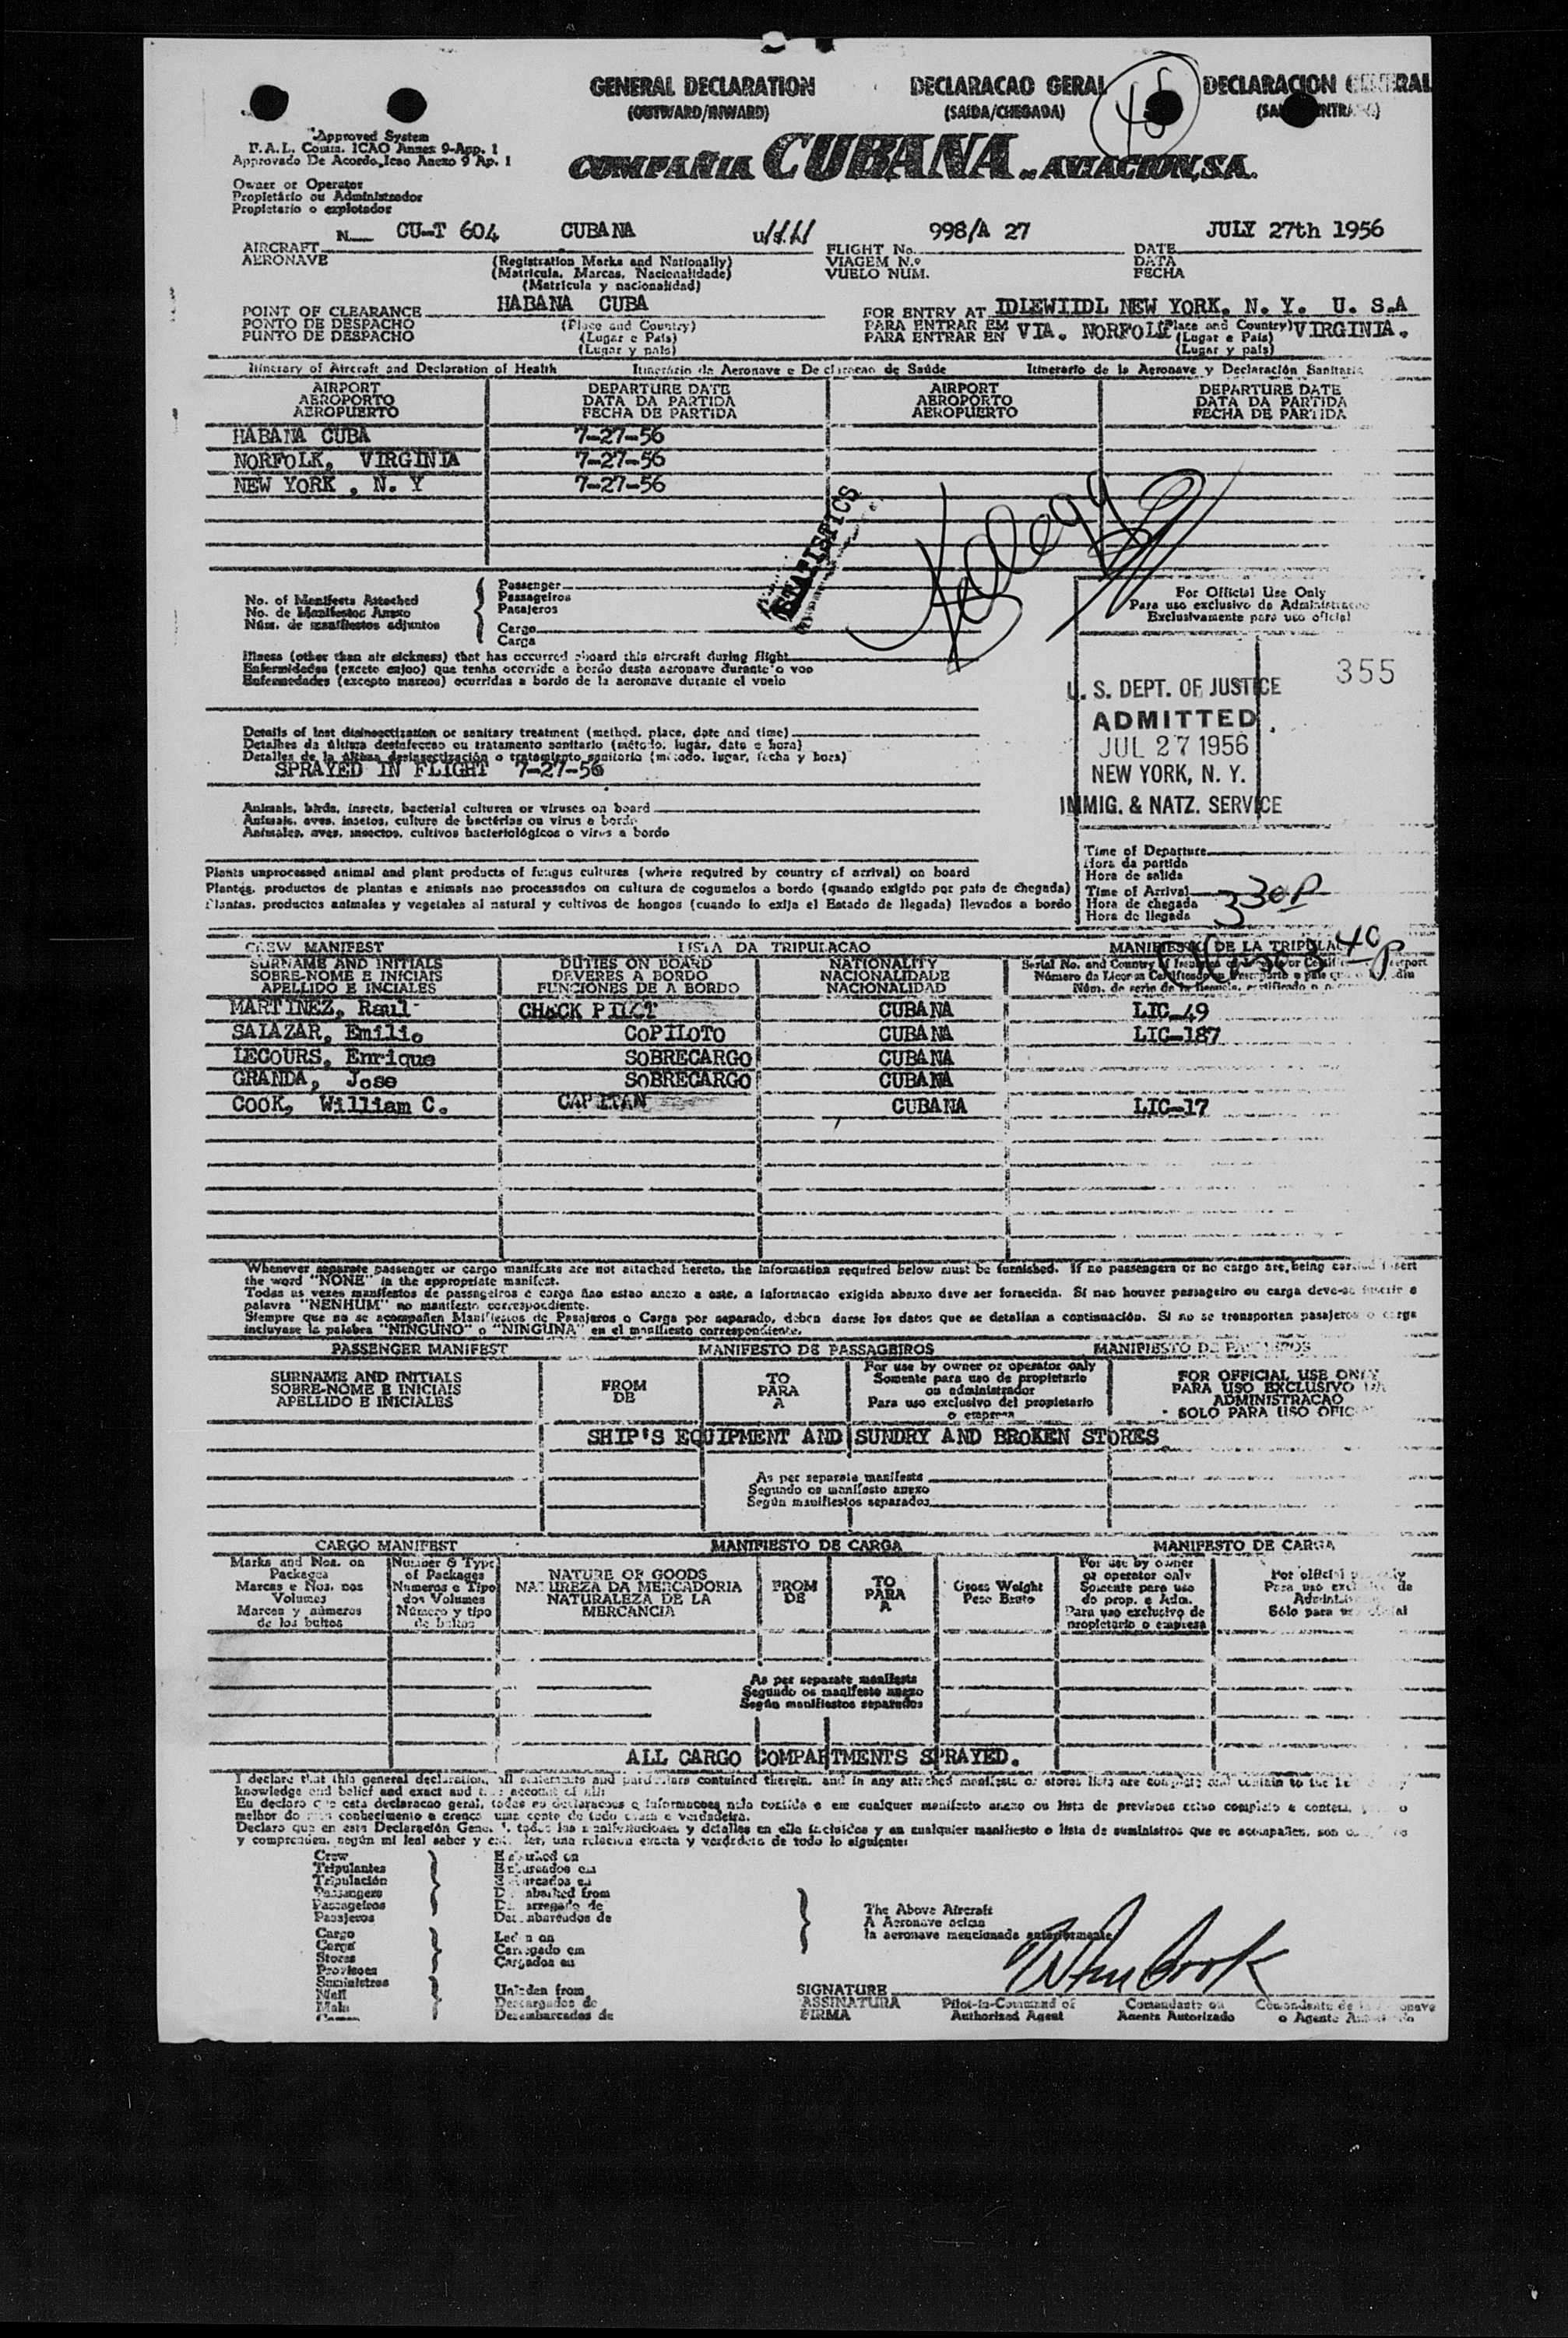 GENERAL DECLARATION DECLARACAO GERAL DECLARACION GENERAL
(OUTWARD/INWARD) (SAIDA/CHEGADA)
Approved System
F.A.L. Comm. ICAO Annex 9-App. 1
Approvado De Acordo, Icao Anexo 9 Ap. 1
COMPAÑIA CUBANA DE AVIACION, S.A.
Owner or Operator
Propietário ou Administrador
Propietario o explotador
N CU-T 604 CUBANA 998/A 27 JULY 27th 1956
AIRCRAFT FLIGHT No. DATE
AERONAVE (Registration Marks and Nationally) VIAGEM N.º DATA
(Matricula, Marcas, Nacionalidade) VUELO NUM. FECHA
(Matrícula y nacionalidad)
POINT OF CLEARANCE HABANA CUBA FOR ENTRY AT IDLEWIIDL NEW YORK, N. Y. U. S.A
PONTO DE DESPACHO (Place and Country) PARA ENTRAR EM VIA. NORFOLK (Place and Country) VIRGINIA.
PUNTO DE DESPACHO (Lugar e País) PARA ENTRAR EN (Lugar e País)
(Lugar y país) (Lugar y país)
Itinerary of Aircraft and Declaration of Health Itinerário da Aeronave e Declaracao de Saúde Itinerario de la Aeronave y Declaración Sanitaria
AIRPORT DEPARTURE DATE AIRPORT DEPARTURE DATE
AEROPORTO DATA DA PARTIDA AEROPORTO DATA DA PARTIDA
AEROPUERTO FECHA DE PARTIDA AEROPUERTO FECHA DE PARTIDA
HABANA CUBA 7-27-56
NORFOLK, VIRGINIA 7-27-56
NEW YORK , N. Y 7-27-56
STATISTICS
No. of Manifests Attached
No. de Manifestos Anexo
Núm. de manifiestos adjuntos
Passenger
Passageiros
Pasajeros
Cargo
Carga
For Official Use Only
Para uso exclusivo da Administracao
Exclusivamente para uso oficial
Illness (other than air sickness) that has occurred aboard this aircraft during flight
Enfermidades (exceto enjoo) que tenha ocorrido a bordo desta aeronave durante o voo
Enfermedades (excepto mareos) ocurridas a bordo de la aeronave durante el vuelo
355
U. S. DEPT. OF JUSTICE
ADMITTED
JUL 27 1956
NEW YORK, N. Y.
IMMIG. & NATZ. SERVICE
Details of last disinsectization or sanitary treatment (method, place, date and time)
Detalhes da última desinfeccao ou tratamento sanitario (método, lugar, data e hora)
Detalles de la última desinsectización o tratamiento sanitario (método, lugar, fecha y hora)
SPRAYED IN FLIGHT 7-27-56
Animals, birds, insects, bacterial cultures or viruses on board
Animais, aves, insetos, culture de bactérias ou virus a bordo
Animales, aves, insectos, cultivos bacteriológicos o virus a bordo
Plants unprocessed animal and plant products of fungus cultures (where required by country of arrival) on board
Plantés, productos de plantas e animais nao processados on cultura de cogumelos a bordo (quando exigido por pais de chegada)
Plantas, productos animales y vegetales al natural y cultivos de hongos (cuando lo exija el Estado de llegada) llevados a bordo
Time of Departure
Hora da partida
Hora de salida
Time of Arrival 330P
Hora de chegada
Hora de llegada
CREW MANIFEST LISTA DA TRIPULACAO MANIFIESTO DE LA TRIPULA
SURNAME AND INITIALS DUTIES ON BOARD NATIONALITY
SOBRE-NOME E INICIAIS DEVERES A BORDO NACIONALIDADE
APELLIDO E INCIALES FUNCIONES DE A BORDO NACIONALIDAD
MARTINEZ, Raul CHECK PILOT CUBANA LIC-49
SALAZAR, Emilio COPILOTO CUBANA LIC-187
LECOURS, Enrique SOBRECARGO CUBANA
GRANDA, Jose SOBRECARGO CUBANA
COOK, William C. CAPITAN CUBANA LIC-17
Whenever separate passenger or cargo manifests are not attached hereto, the information required below must be furnished. If no passengers or no cargo are being carried insert
the word "NONE" in the appropriate manifest.
Todas as vezes manifestos de passageiros e carga nao estao anexo a este, a informacao exigida abaixo deve ser fornecida. Si nao houver passageiro ou carga deve-se inserir a
palavra "NENHUM" no manifesto correspondiente.
Siempre que no se acompañen Manifiestos de Pasajeros o Carga por separado, deben darse los datos que se detallan a continuación. Si no se transporten pasajeros o carga
incluyase la palabra "NINGUNO" o "NINGUNA" en el manifiesto correspondiente.
PASSENGER MANIFEST MANIFESTO DE PASSAGEIROS MANIFIESTO DE PASAJEROS
SURNAME AND INITIALS
SOBRE-NOME E INICIAIS
APELLIDO E INICIALES
FROM
DE
TO
PARA
A
For use by owner or operator only
Somente para uso de propietario
ou administrador
Para uso exclusivo del propietario
o empresa
FOR OFFICIAL USE ONLY
PARA USO EXCLUSIVO DA
ADMINISTRACAO
SOLO PARA USO OFIC
SHIP'S EQUIPMENT AND SUNDRY AND BROKEN STORES
As per separate manifests
Segundo os manifesto anexo
Según manifiestos separados
CARGO MANIFEST MANIFIESTO DE CARGA MANIFESTO DE CARGA
Marks and Nos. on
Packages
Marcas e Nos. nos
Volumes
Marcas y números
de los bultos
Number & Type
of Packages
Numeros e Tipo
dos Volumes
Número y tipo
de bultos
NATURE OF GOODS
NATUREZA DA MERCADORIA
NATURALEZA DE LA
MERCANCIA
FROM
DE
TO
PARA
A
Gross Weight
Peso Bruto
For use by owner
or operator only
Somente para uso
do prop. e Adm.
Para uso exclusivo de
propietario o empresa
As per separate manifests
Segundo os manifesto anexo
Según manifiestos separados
ALL CARGO COMPARTMENTS SPRAYED.
I declare that this general declaration, all statements and particulars contained therein, and in any attached manifests or stores lists are complete and
knowledge and belief and exact and true account of all:
Declaro que en esta Declaración General, todas las manifestaciones y detalles en ella incluidos y en cualquier manifiesto o lista de suministros que se acompañen, son
y comprenden, según mi leal saber y entender, una relacion exacta y verdadera de todo lo siguiente:
Crew
Tripulantes
Tripulación
Passengers
Passageiros
Pasajeros
Cargo
Carga
Stores
Provisoes
Suministros
Mail
Mala
Embarked on
Embarcados em
Embarcados en
Disembarked from
Desembarcados de
Carregado em
Cargados en
Unladen from
Descargados de
Desembarcados de
The Above Aircraft
A Aeronave acima
la aeronave mencionada anteriormente
Wm Cook
SIGNATURE
ASSINATURA Pilot-in-Command of Comandante ou
FIRMA Authorized Agent Agente Autorizado